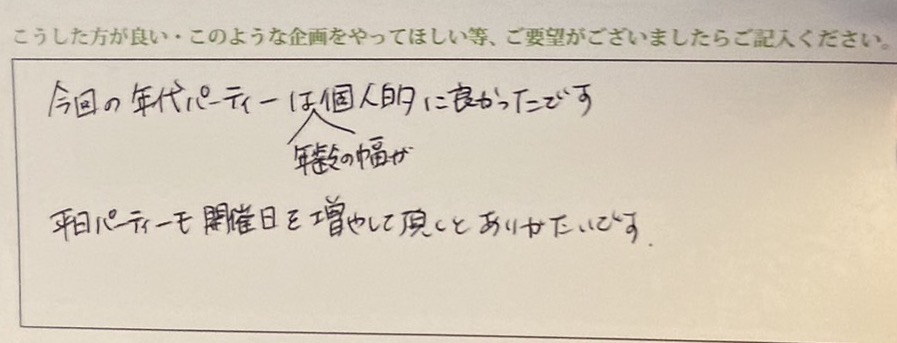 こうした方が良い・このような企画をやってほしい等、ご要望がございましたらご記入ください。
今回の年代パーティーは個人的に良かったです
年齢の幅が
平日パーティーモ開催日を増やして頂くとありがたいです.